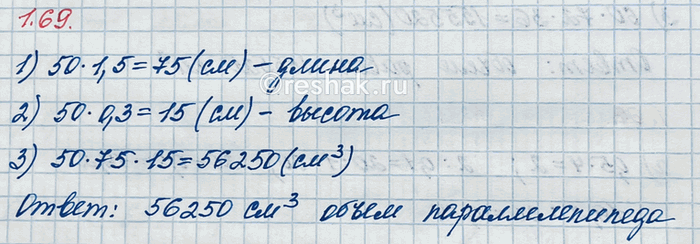 1.69.
1) 50·1,5=75(см) – длина
2) 50·0,3=15(см) – высота
3) 50·75·15=56250(см³)
Ответ: 56250 см³ объем параллелепипеда
©reshak.ru